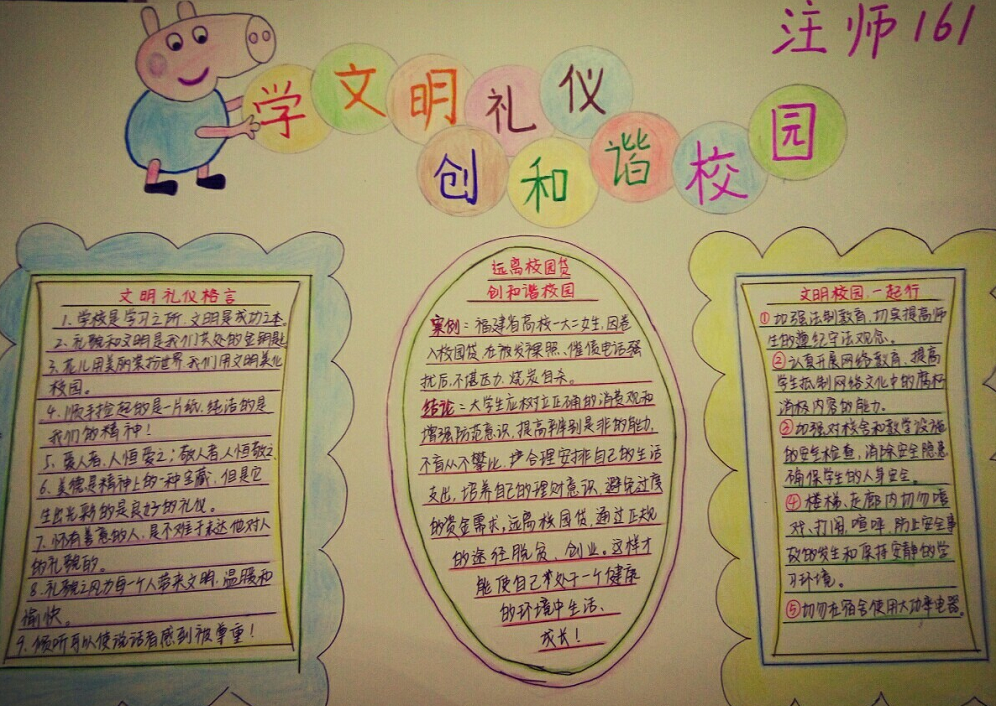 注师161
学文明礼仪
创和谐校园
文明礼仪格言
1、学校是学习之所,文明是成功之本。
2、礼貌和文明是我们共处的金钥匙
3、花儿用美丽装扮世界,我们用文明美化
校园。
4、顺手捡起的是一片纸,纯洁的是
我们的精神!
5、爱人者,人恒爱之;敬人者,人恒敬之
6、美德是精神上的一种宝藏,但是它
生出光彩的是良好的礼仪。
7、怀有善意的人,是不难于表达他对人
的礼貌的。
8、礼貌之风为每个人带来文明、温暖和
愉快。
9、倾听可以使说话者感到被尊重!
远离校园贷
创和谐校园
案例:福建省高校一大二女生,因卷
入校园贷,在被发裸照、催债电话骚
扰后,不堪压力,烧炭自杀。
结论:大学生应树立正确的消费观和
增强防范意识,提高辨别是非的能力,
不盲从不攀比,合理安排自己的生活
支出,培养自己的理财意识,避免过度
的资金需求,远离校园贷,通过正规
的途径脱贫、创业。这样才
能使自己处于一个健康
的环境中生活、
成长!
文明校园,一起行
①加强法制教育,切实提高师
生的遵纪守法观念。
②认真开展网络教育,提高
学生抵制网络文化中的腐朽
消极内容的能力。
③加强对校舍和教学设施
的安全检查,消除安全隐患
确保学生的人身安全。
④楼梯、走廊内切勿嘻
戏、打闹、喧哗,防止安全事
故的发生和保持安静的学
习环境。
⑤切勿在宿舍使用大功率电器。